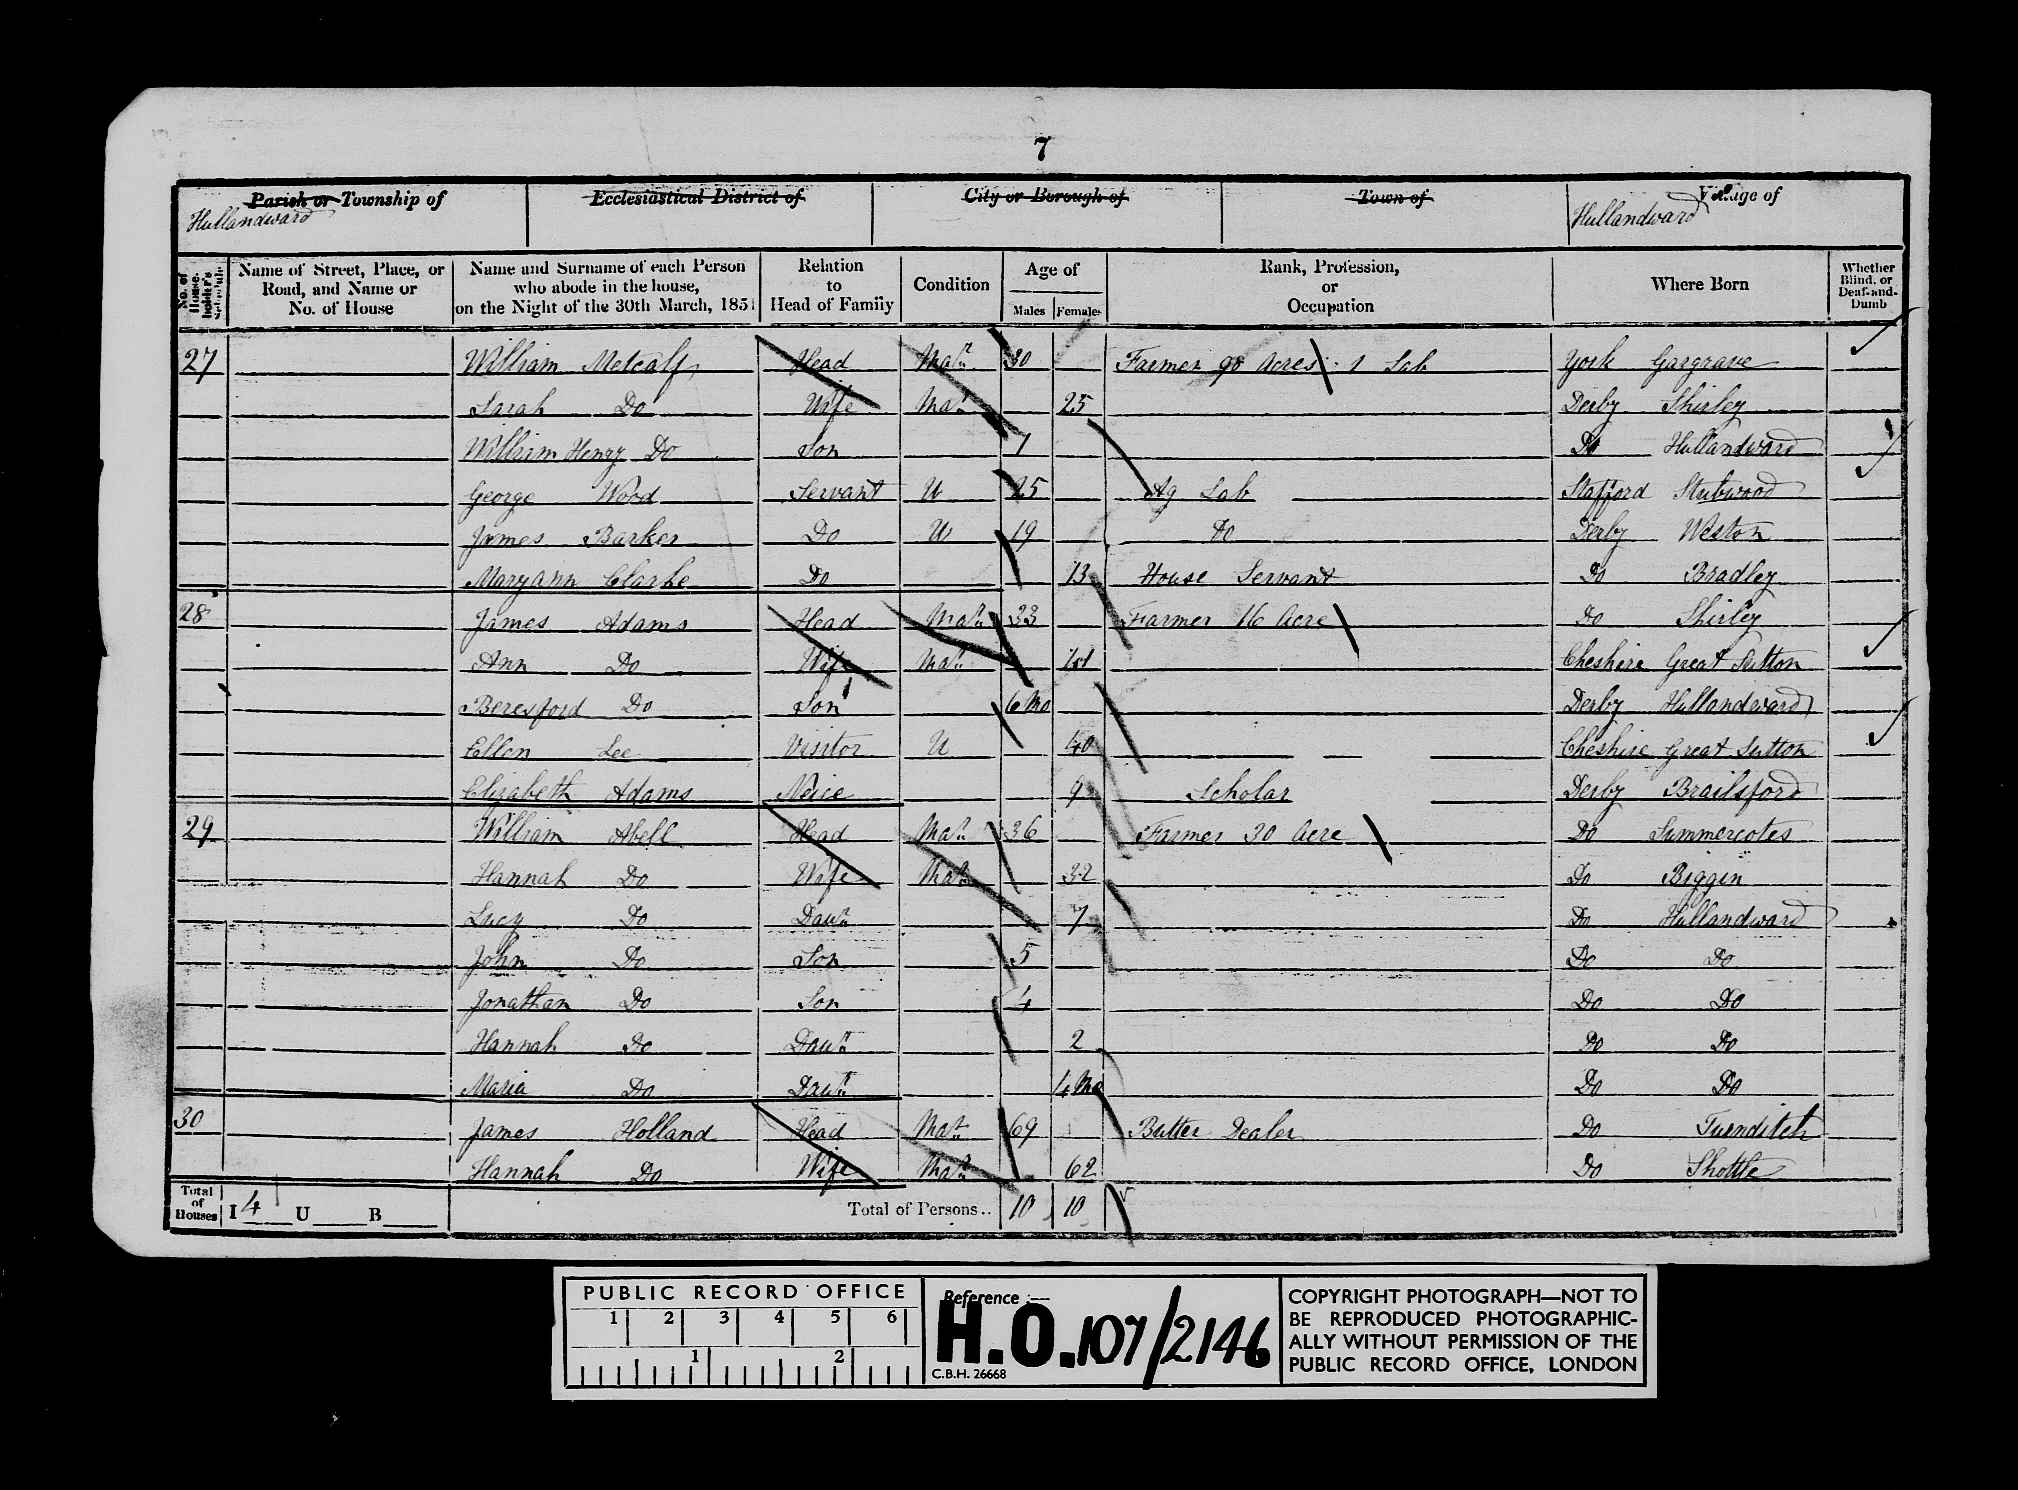 7
Parish or Township of Ecclesiastical District of City or Borough of Town of Village of
Hullandward Hullandward
No. of House-holder's Schedule Name of Street, Place, or Road, and Name or No. of House Name and Surname of each Person who abode in the house, on the Night of the 30th March, 1851 Relation to Head of Family Condition Age of Males Females Rank, Profession, or Occupation Where Born Whether Blind, or Deaf-and-Dumb
27 William Metcalf Head Mar 30 Farmer 98 Acres 1 Lab York Gargrave
Sarah Do Wife Mar 25 Derby Shirley
William Henry Do Son 1 Do Hullandward
George Wood Servant U 25 Ag Lab Stafford Stubwood
James Barker Do U 19 Do Derby Weston
Maryann Clarke Do 13 House Servant Do Bradley
28 James Adams Head Mar 33 Farmer 16 Acre Do Shirley
Ann Do Wife Mar 41 Cheshire Great Sutton
Beresford Do Son 6 Mo Derby Hullandward
Ellen Lee Visitor U 40 Cheshire Great Sutton
Elizabeth Adams Neice 9 Scholar Derby Brailsford
29 William Abell Head Mar 36 Farmer 30 Acre Do Summercotes
Hannah Do Wife Mar 32 Do Biggin
Lucy Do Daur 7 Do Hullandward
John Do Son 5 Do Do
Jonathan Do Son 4 Do Do
Hannah Do Daur 2 Do Do
Maria Do Daur 4 Mo Do Do
30 James Holland Head Mar 69 Butter Dealer Do Turnditch
Hannah Do Wife Mar 62 Do Shottle
Total of Houses I 4 U B Total of Persons.. 10 10
PUBLIC RECORD OFFICE
1 2 3 4 5 6
1 2
Reference :—
H.O.107/2146
C.B.H. 26668
COPYRIGHT PHOTOGRAPH—NOT TO
BE REPRODUCED PHOTOGRAPHIC-
ALLY WITHOUT PERMISSION OF THE
PUBLIC RECORD OFFICE, LONDON